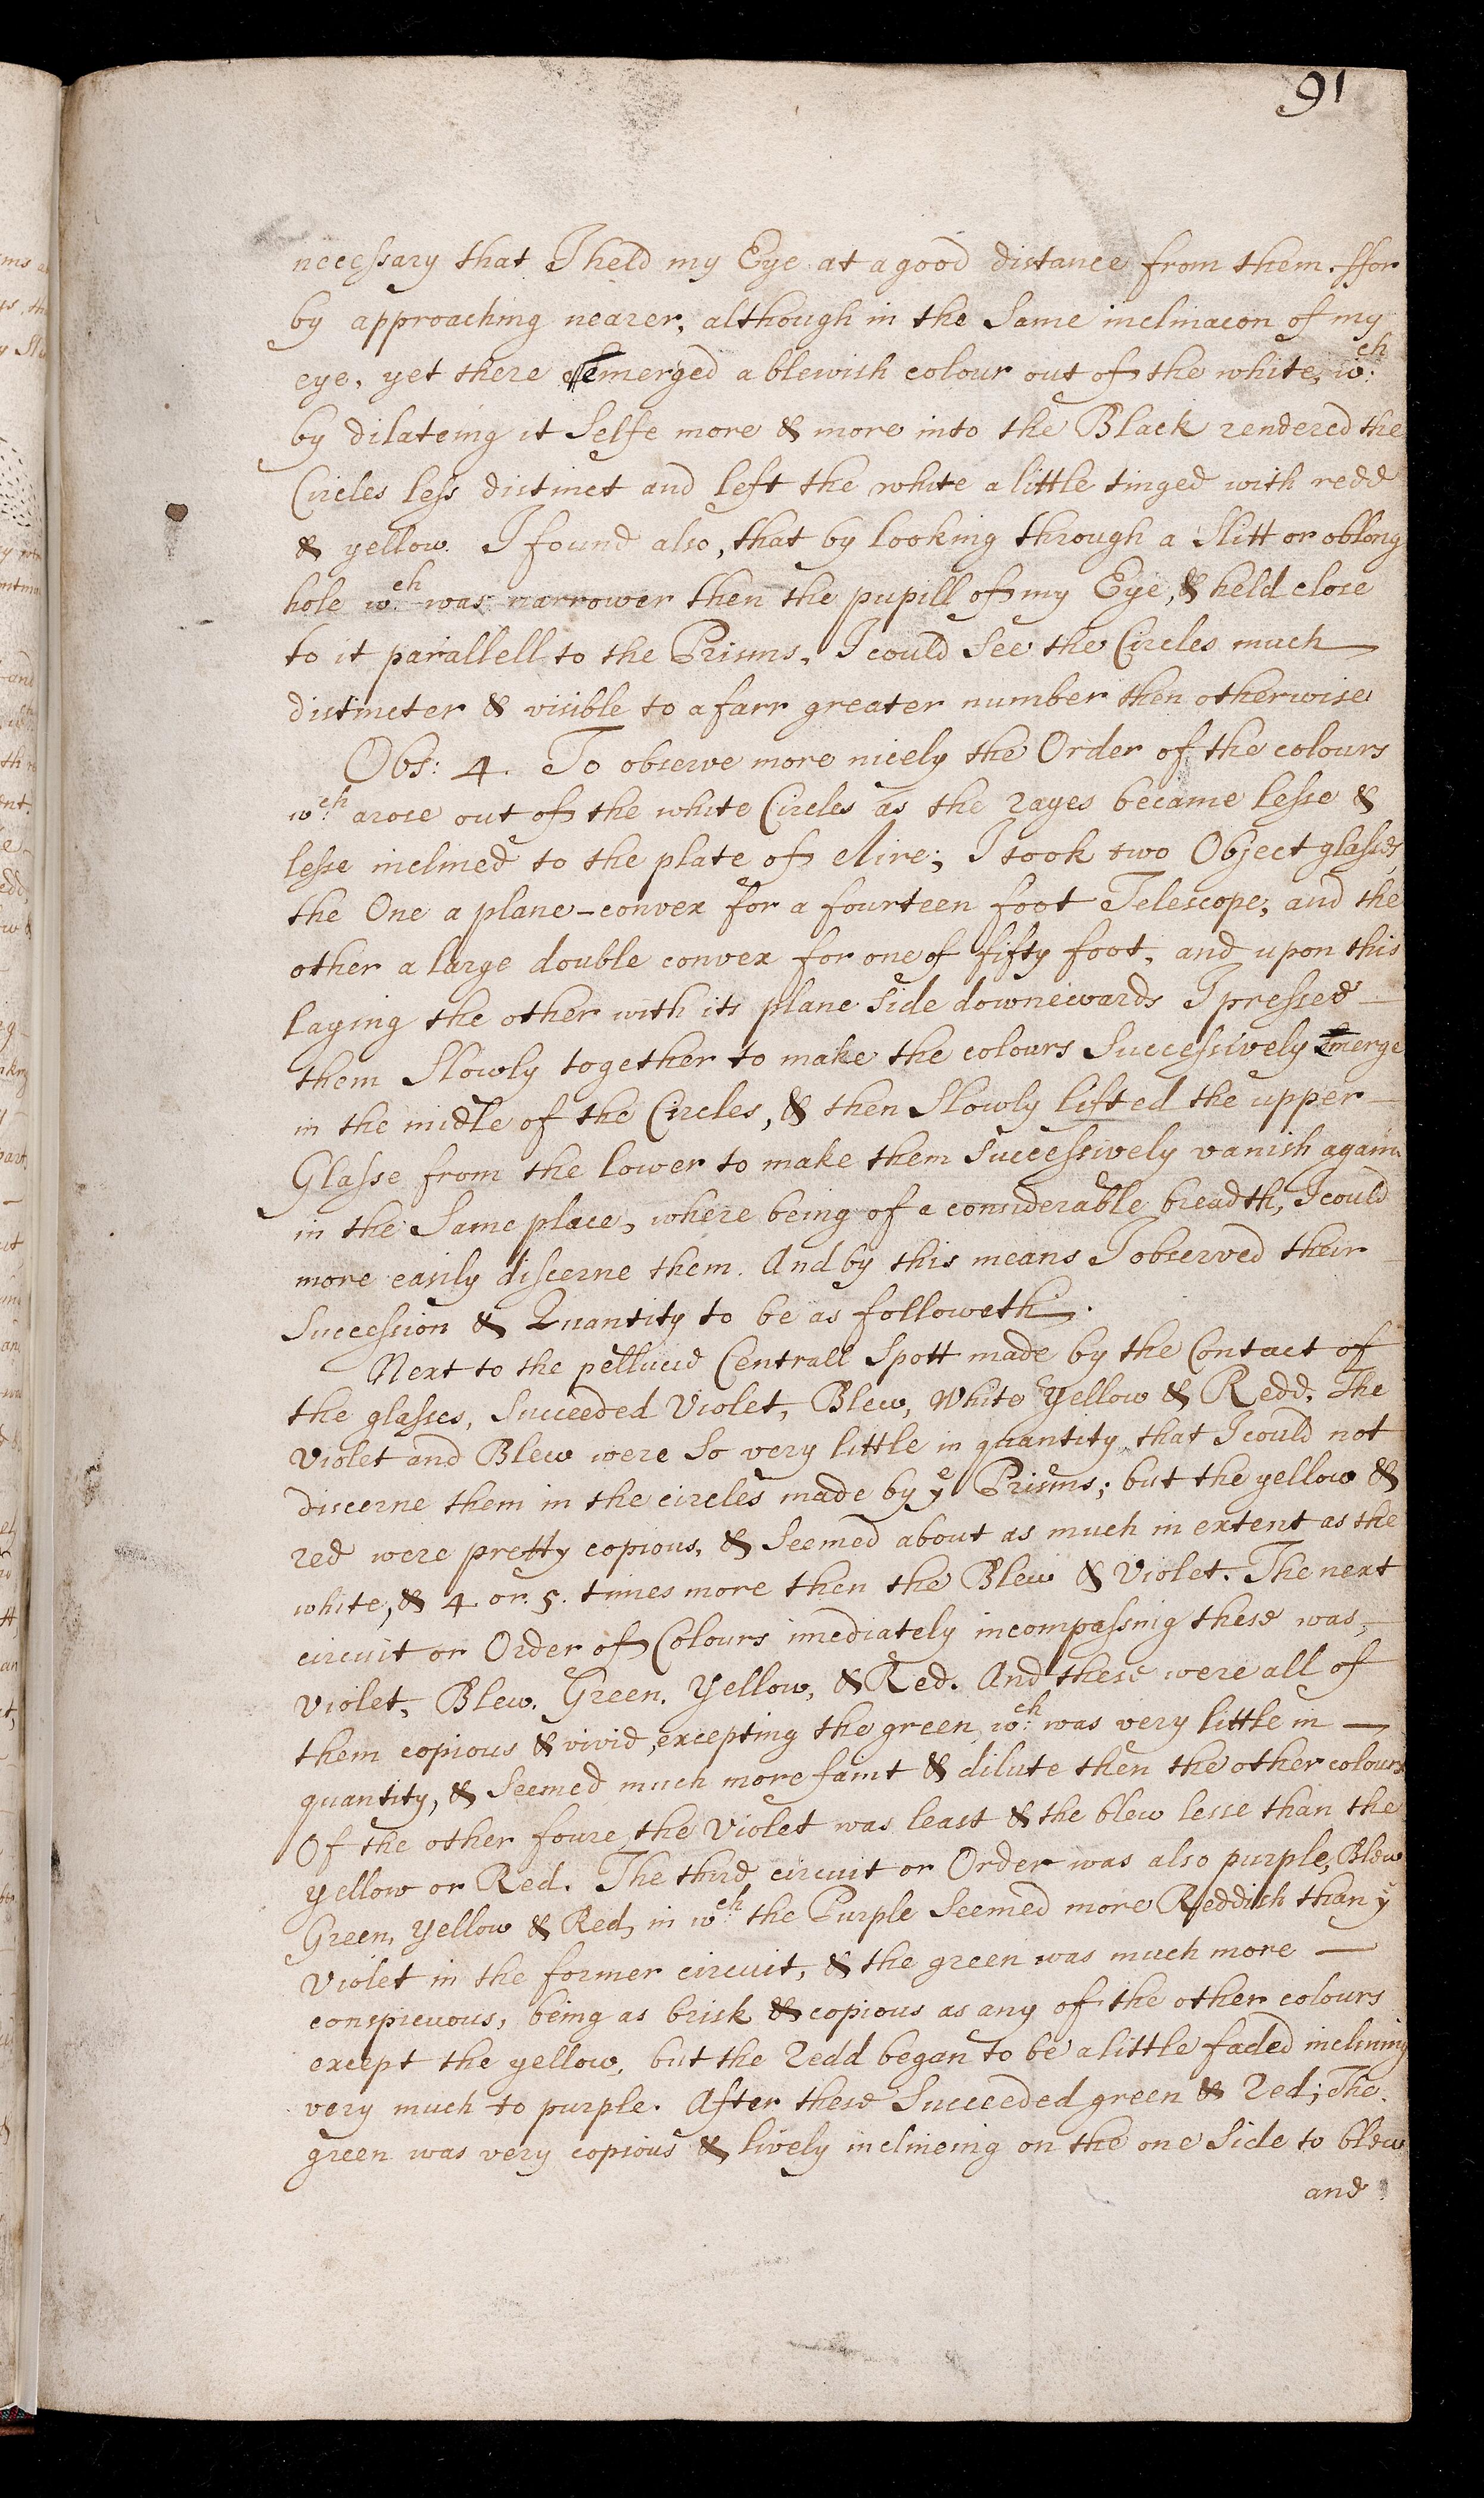 91
necessary that I held my Eye at a good distance from them. ffor
by approaching nearer, although in the Same inclinacon of my
eye, yet there emerged a blewish colour out of the white, wch
by dilateing it Selfe more & more into the Black rendered the
Circles less distinct and left the white a little tinged with redd
& yellow. I found also, that by looking through a Slitt or oblong
hole wch was narrower then the pupill of my Eye, & held close
to it parallell to the Prisms, I could See the Circles much
distincter & visible to a farr greater number then otherwise
Obs: 4. To observe more nicely the Order of the colours
wch arose out of the white Circles as the rayes became lesse &
lesse inclined to the plate of Aire; I took two Object glasses,
the One a plane-convex for a fourteen foot Telescope, and the
other a large double convex for one of fifty foot, and upon this
laying the other with its plane Side downewards I pressed
them Slowly together to make the colours Successively Emerge
in the midle of the Circles, & then Slowly lifted the upper
Glasse from the lower to make them Successively vanish again
in the Same place, where being of a considerable breadth, I could
more easily discerne them. And by this means I observed their
Succession & Quantity to be as followeth.
Next to the pellucid Centrall Spott made by the Contact of
the glasses, Succeeded Violet, Blew, White Yellow & Redd. The
Violet and Blew were So very little in quantity that I could not
discerne them in the circles made by ye Prisms; but the yellow &
red were pretty copious, & Seemed about as much in extent as the
white, & 4 or 5. times more then the Blew & Violet. The next
circuit or Order of Colours imediately incompassing these was,
Violet, Blew. Green. Yellow, & Red. And these were all of
them copious & vivid, excepting the green wch was very little in
quantity, & Seemed much more faint & dilute then the other colours
Of the other foure, the Violet was least & the blew lesse than the
Yellow or Red. The third circuit or Order was also purple, Blew
Green, Yellow & Red, in wch the Purple Seemed more Reddish than ye
Violet in the former circuit, & the green was much more
conspicuous, being as brisk & copious as any of the other colours
except the yellow, but the redd began to be a little faded inclining
very much to purple. After these Succeeded green & red; The
green was very copious & lively inclineing on the one Side to blew
and